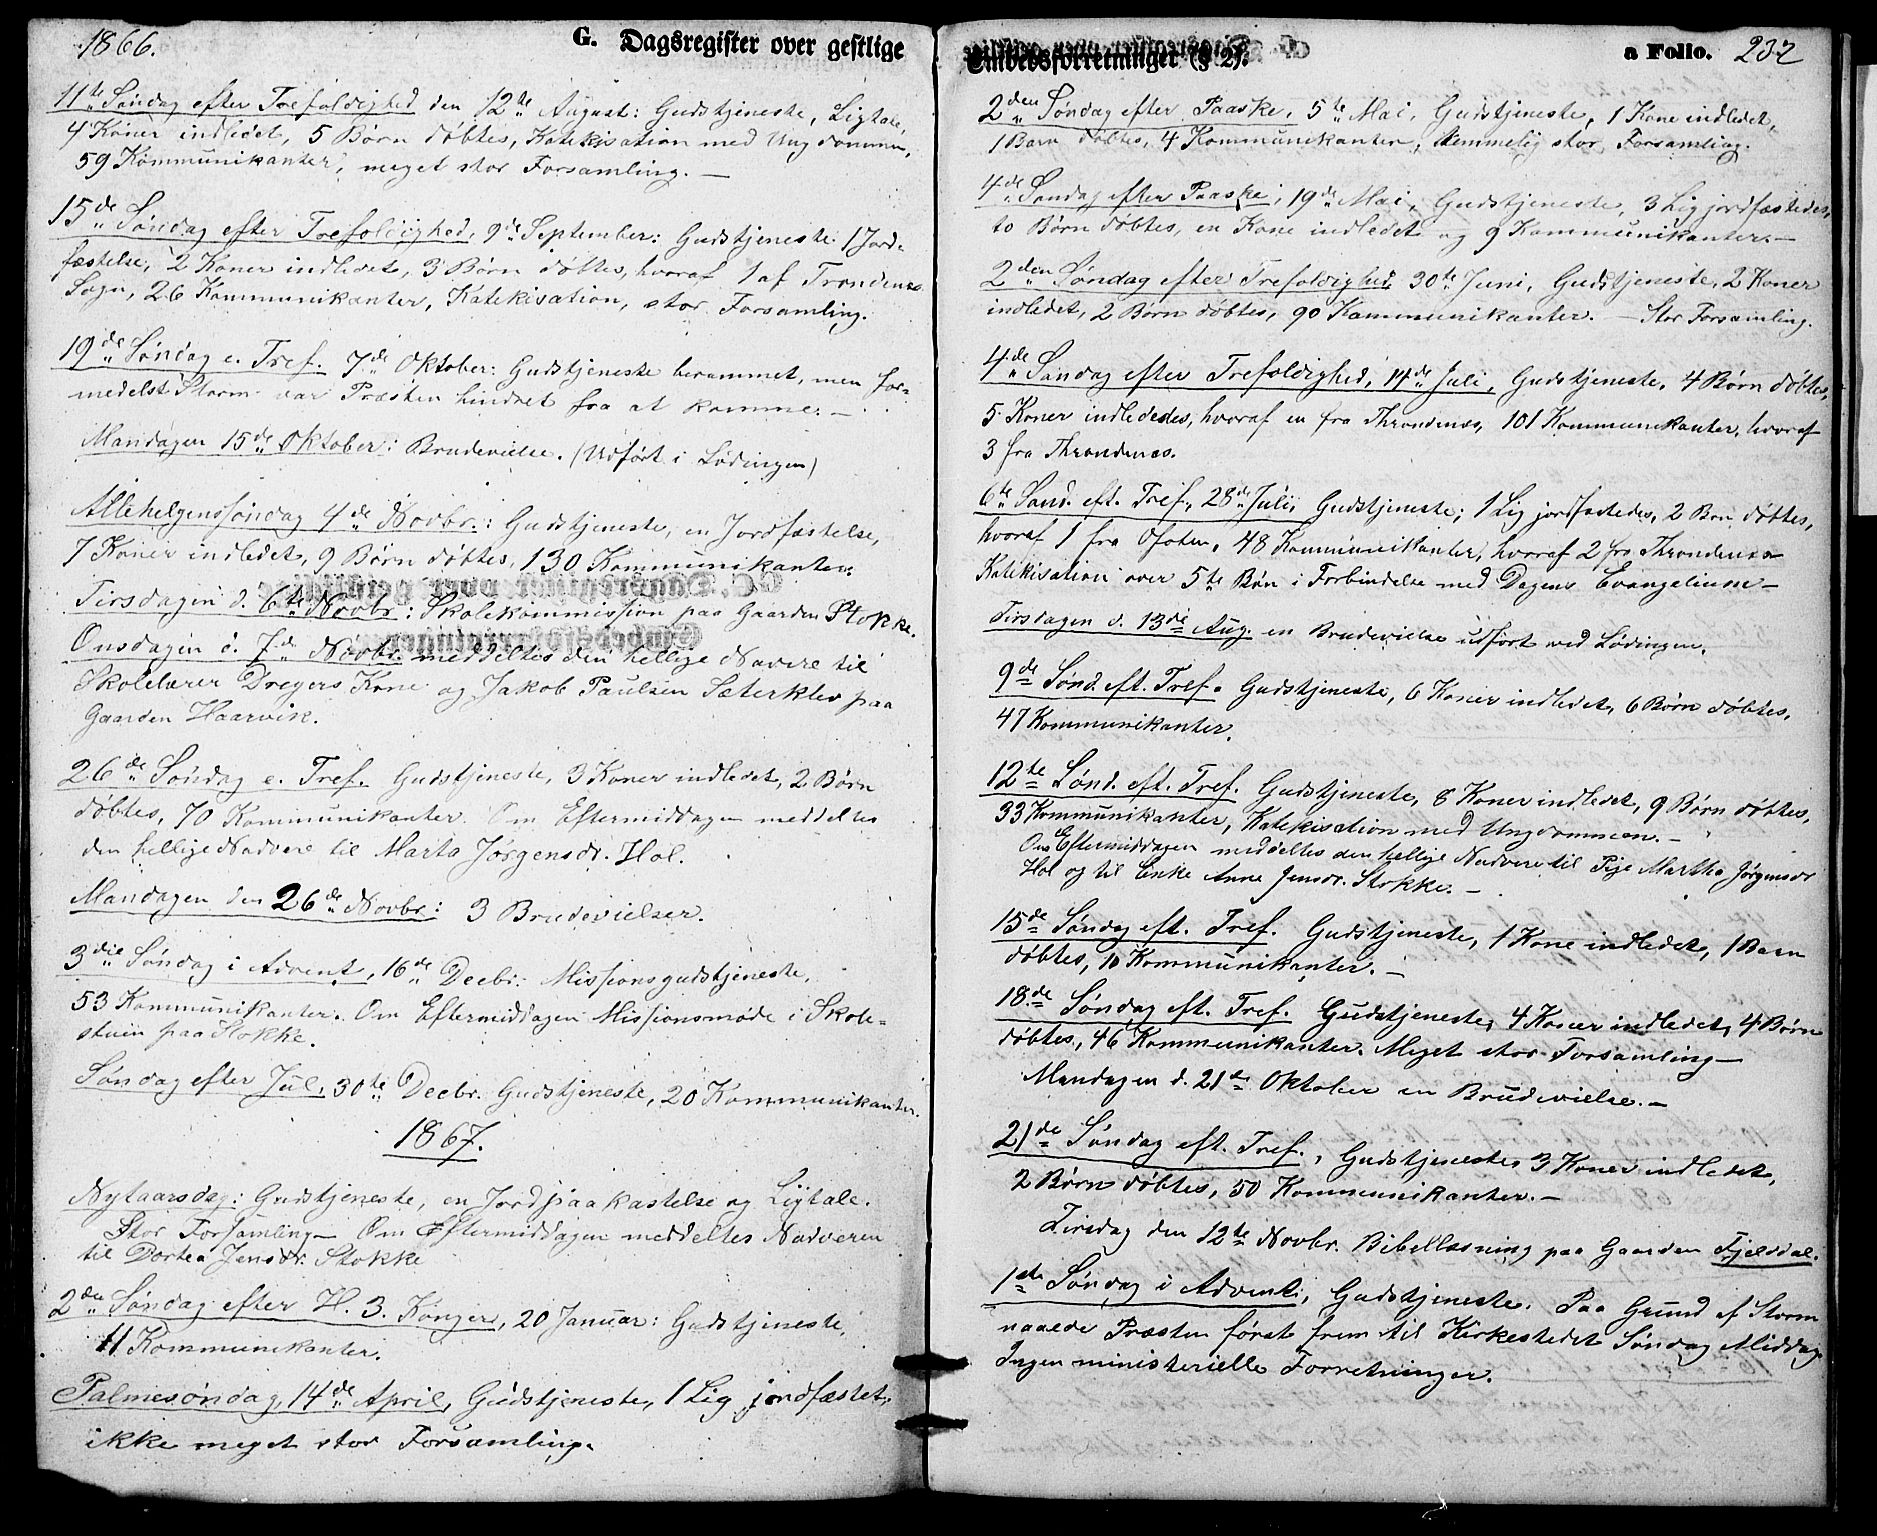 1866.
G. Dagsregister over gestlige
11te Søndag efter Trefoldighed den 12te August: Gudstjeneste, Ligtale,
4 Koner indledet, 5 Børn døbtes, Katekisation med Ungdommen,
59 Kommunikanter, meget stor Forsamling. —
15de Søndag efter Trefoldighed, 9de September: Gudstjeneste 1 Jord-
fæstelse, 2 Koner indledet, 3 Børn døbtes, hvoraf 1 af Trondenæs
Sogn, 26 Kommunikanter, Katekisation, stor Forsamling.
19de Søndag e. Tref. 7de Oktober: Gudstjeneste berammet, men for-
medelst Storm var Præsten hindret fra at komme. —
Mandagen 15de Oktober: Brudevielse. (Udført i Lødingen)
Allehelgenssøndag 4de Novbr.: Gudstjeneste, en Jordfæstelse,
7 Koner indledet, 9 Børn døbtes, 130 Kommunikanter.
Tirsdagen d. 6te Novbr: Skolekommission paa Gaarden Stokke.
Onsdagen d. 7de Novbr. meddeltes den hellige Navere til
Skolelærer Dreyers Kone og Jakob Paulsen Sæterklev paa
Gaarden Haarvik.
26de Søndag e. Tref. Gudstjeneste, 3 Koner indledet, 2 Børn
døbtes, 70 Kommunikanter. Om Eftermiddagen meddeltes
den hellige Nadvere til Marta Jørgensdr. Hol.
Mandagen den 26de Novbr: 3 Brudevielser.
3die Søndag i Advent, 16de Decbr. Missionsgudstjeneste,
53 Kommunikanter. Om Eftermiddagen Missionsmøde i Skole-
stuen paa Stokke.
Søndag efter Jul, 30te Decbr. Gudstjeneste, 20 Kommunikanter.
1867.
Nytaarsdag: Gudstjeneste, en Jordpaakastelse og Ligtale.
Stor Forsamling — Om Eftermiddagen meddeltes Nadveren
til Dortea Jensdr. Stokke
2den Søndag efter H. 3. Konger, 20 Januar: Gudstjeneste,
11 Kommunikanter.
Palmesøndag, 14de April, Gudstjeneste, 1 Lig jordfæstet,
ikke meget stor Forsamling.
Embedsforretninger (§ 2).
a Folio. 232
2den Søndag efter Paaske, 5te Mai, Gudstjeneste, 1 Kone indledet,
1 Barn døbtes, 4 Kommunikanter, temmelig stor Forsamling.
4de Søndag efter Paaske, 19de Mai, Gudstjeneste, 3 Lig jordfæstedes,
to Børn døbtes, en Kone indledet og 9 Kommunikanter. —
2den Søndag efter Trefoldighed 30te Juni, Gudstjeneste, 2 Koner
indledet, 2 Børn døbtes, 90 Kommunikanter. — Stor Forsamling.
4de Søndag efter Trefoldighed, 14de Juli, Gudstjeneste, 4 Børn døbtes,
5 Koner indlededes, hvoraf en fra Throndenæs, 101 Kommunikanter, hvoraf
3 fra Throndenæs.
6te Sønd. eft. Tref., 28de Juli, Gudstjeneste; 1 Lig jordfæstedes, 2 Brn. døbtes,
hvoraf 1 fra Ofoten, 48 Kommunikanter, hvoraf 2 fra Throndenæs
Katekisation over 5te Bøn i Forbindelse med Dagens Evangelium —
Tirsdagen d. 13de Aug. en Brudevielse udført ved Lødingen.
9de Sønd. eft. Tref. Gudstjeneste, 6 Koner indledet, 6 Børn døbtes,
47 Kommunikanter.
12te Sønd. eft. Tref. Gudstjeneste, 8 Koner indledet, 9 Børn døbtes,
33 Kommunikanter, Katekisation med Ungdommen. —
Om Eftermiddagen meddeltes den hellige Nadvere til Pige Martha Jørgensdr
Hol og til Enke Anne Jensdr. Stokke. —
15de Søndag eft. Tref. Gudstjeneste, 1 Kone indledet, 1 Barn
døbtes, 10 Kommunikanter. —
18de Søndag eft. Tref. Gudstjeneste, 4 Koner indledet, 4 Børn
døbtes, 46 Kommunikanter. Meget stor Forsamling —
Mandagen d. 21de Oktober en Brudevielse. —
21de Søndag eft. Tref., Gudstjeneste, 3 Koner indledet,
2 Børn døbtes, 50 Kommunikanter. —
Tirsdag den 12te Novbr. Bibellæsning paa Gaarden Fjelddal.
1ste Søndag i Advent, Gudstjeneste. Paa Grund af Storm
naaede Præsten først frem til Kirkestedet Søndag Middag.
Ingen ministerielle Forretninger.